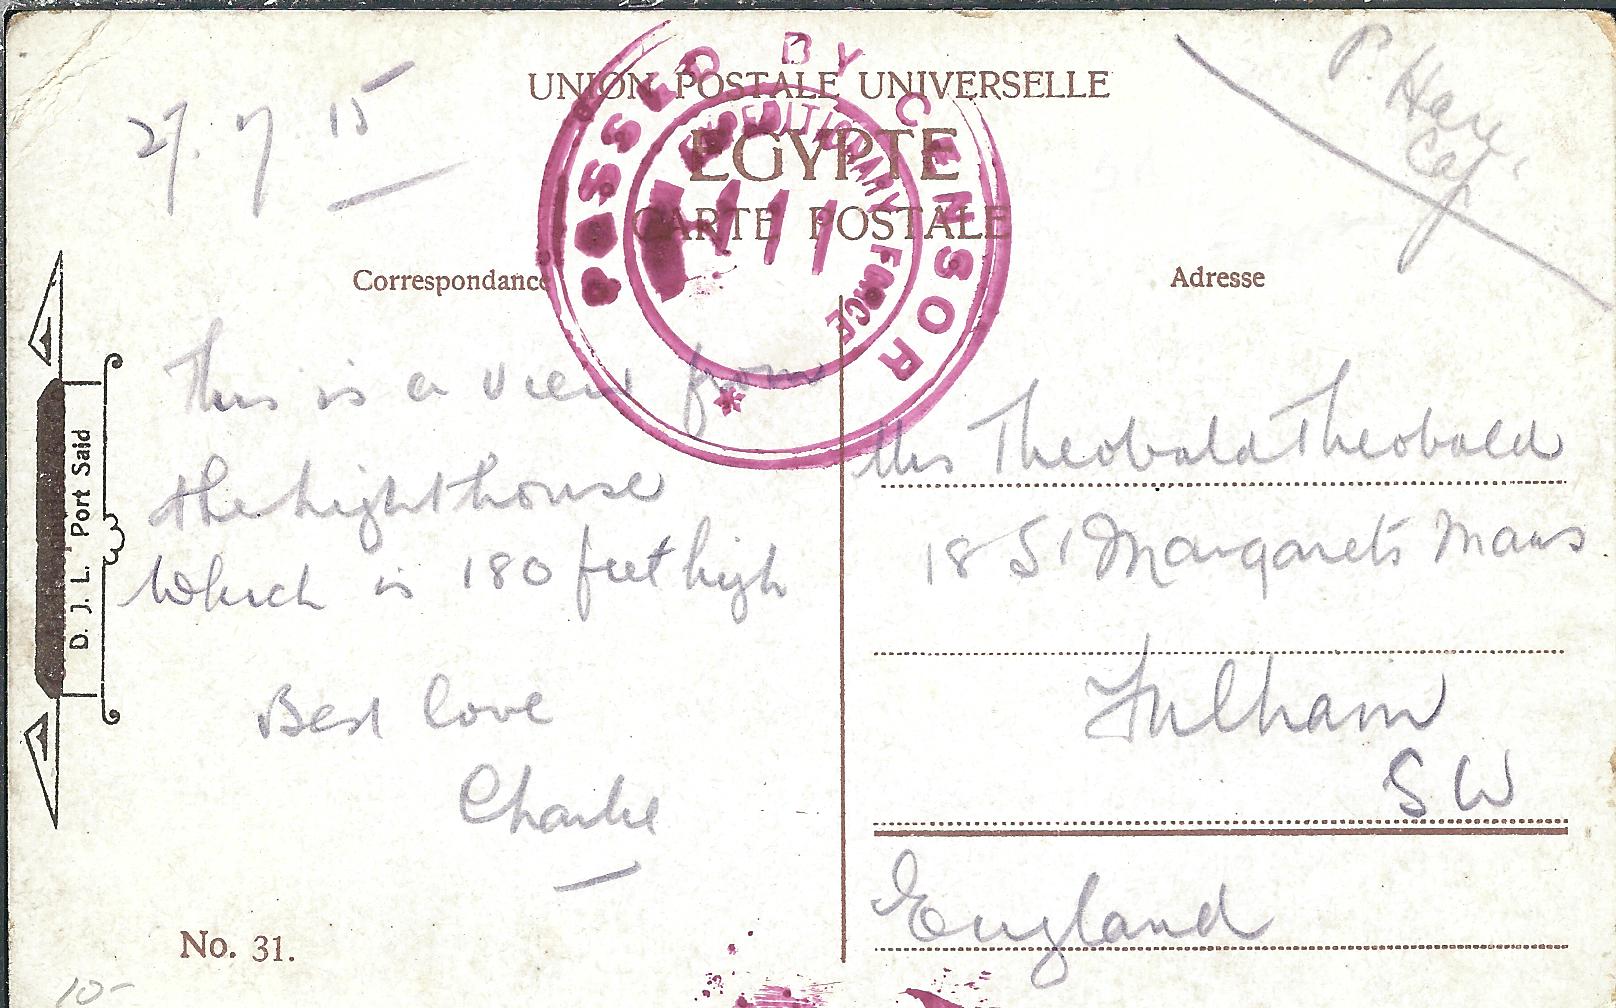 27. 7 15
UNION POSTALE UNIVERSELLE
EGYPTE
CARTE POSTALE
PASSED BY CENSOR
EXPEDITIONARY FORCE
P. Hare
Cap
Correspondance
Adresse
This is a view from
the Lighthouse
Which is 180 feet high
Best love
Charlie
Mrs Theobald Theobald
18 St Margarets Mans
Fulham
SW
England
D. J. L. Port Said
No. 31.
10-